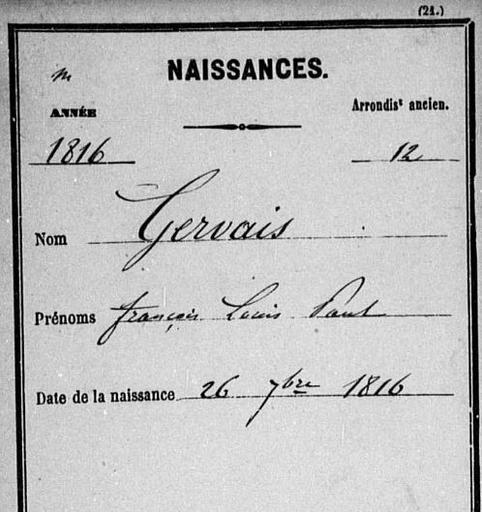 (21.)
m
NAISSANCES.
ANNÉE
Arrondist ancien.
1816
12
Nom Gervais
Prénoms françois Louis Paul
Date de la naissance 26 7bre 1816